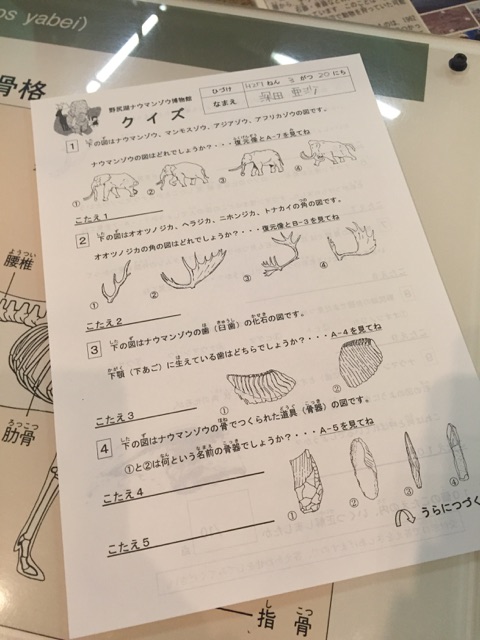 os yabei)
骨格
ようつい
腰椎
ろっこつ
肋骨
し こつ
指骨
野尻湖ナウマンゾウ博物館
クイズ
ひづけ H29 ねん 3 がつ 20 にち
なまえ 深田
1 下の図はナウマンゾウ、マンモスゾウ、アジアゾウ、アフリカゾウの図です。
ナウマンゾウの図はどれでしょうか？・・・復元像とA-7を見てね
① ② ③ ④
こたえ1
2 下の図はオオツノジカ、ヘラジカ、ニホンジカ、トナカイの角の図です。
オオツノジカの角の図はどれでしょうか？・・・復元像とB-3を見てね
① ② ③ ④
こたえ2
3 下の図はナウマンゾウの歯（臼歯）の化石の図です。
下顎（下あご）に生えている歯はどちらでしょうか？・・・A-4を見てね
① ②
こたえ3
4 下の図はナウマンゾウの骨でつくられた道具（骨器）の図です。
①と②は何という名前の骨器でしょうか？・・・A-5を見てね
こたえ4
① ② ③ ④
こたえ5
うらにつづく